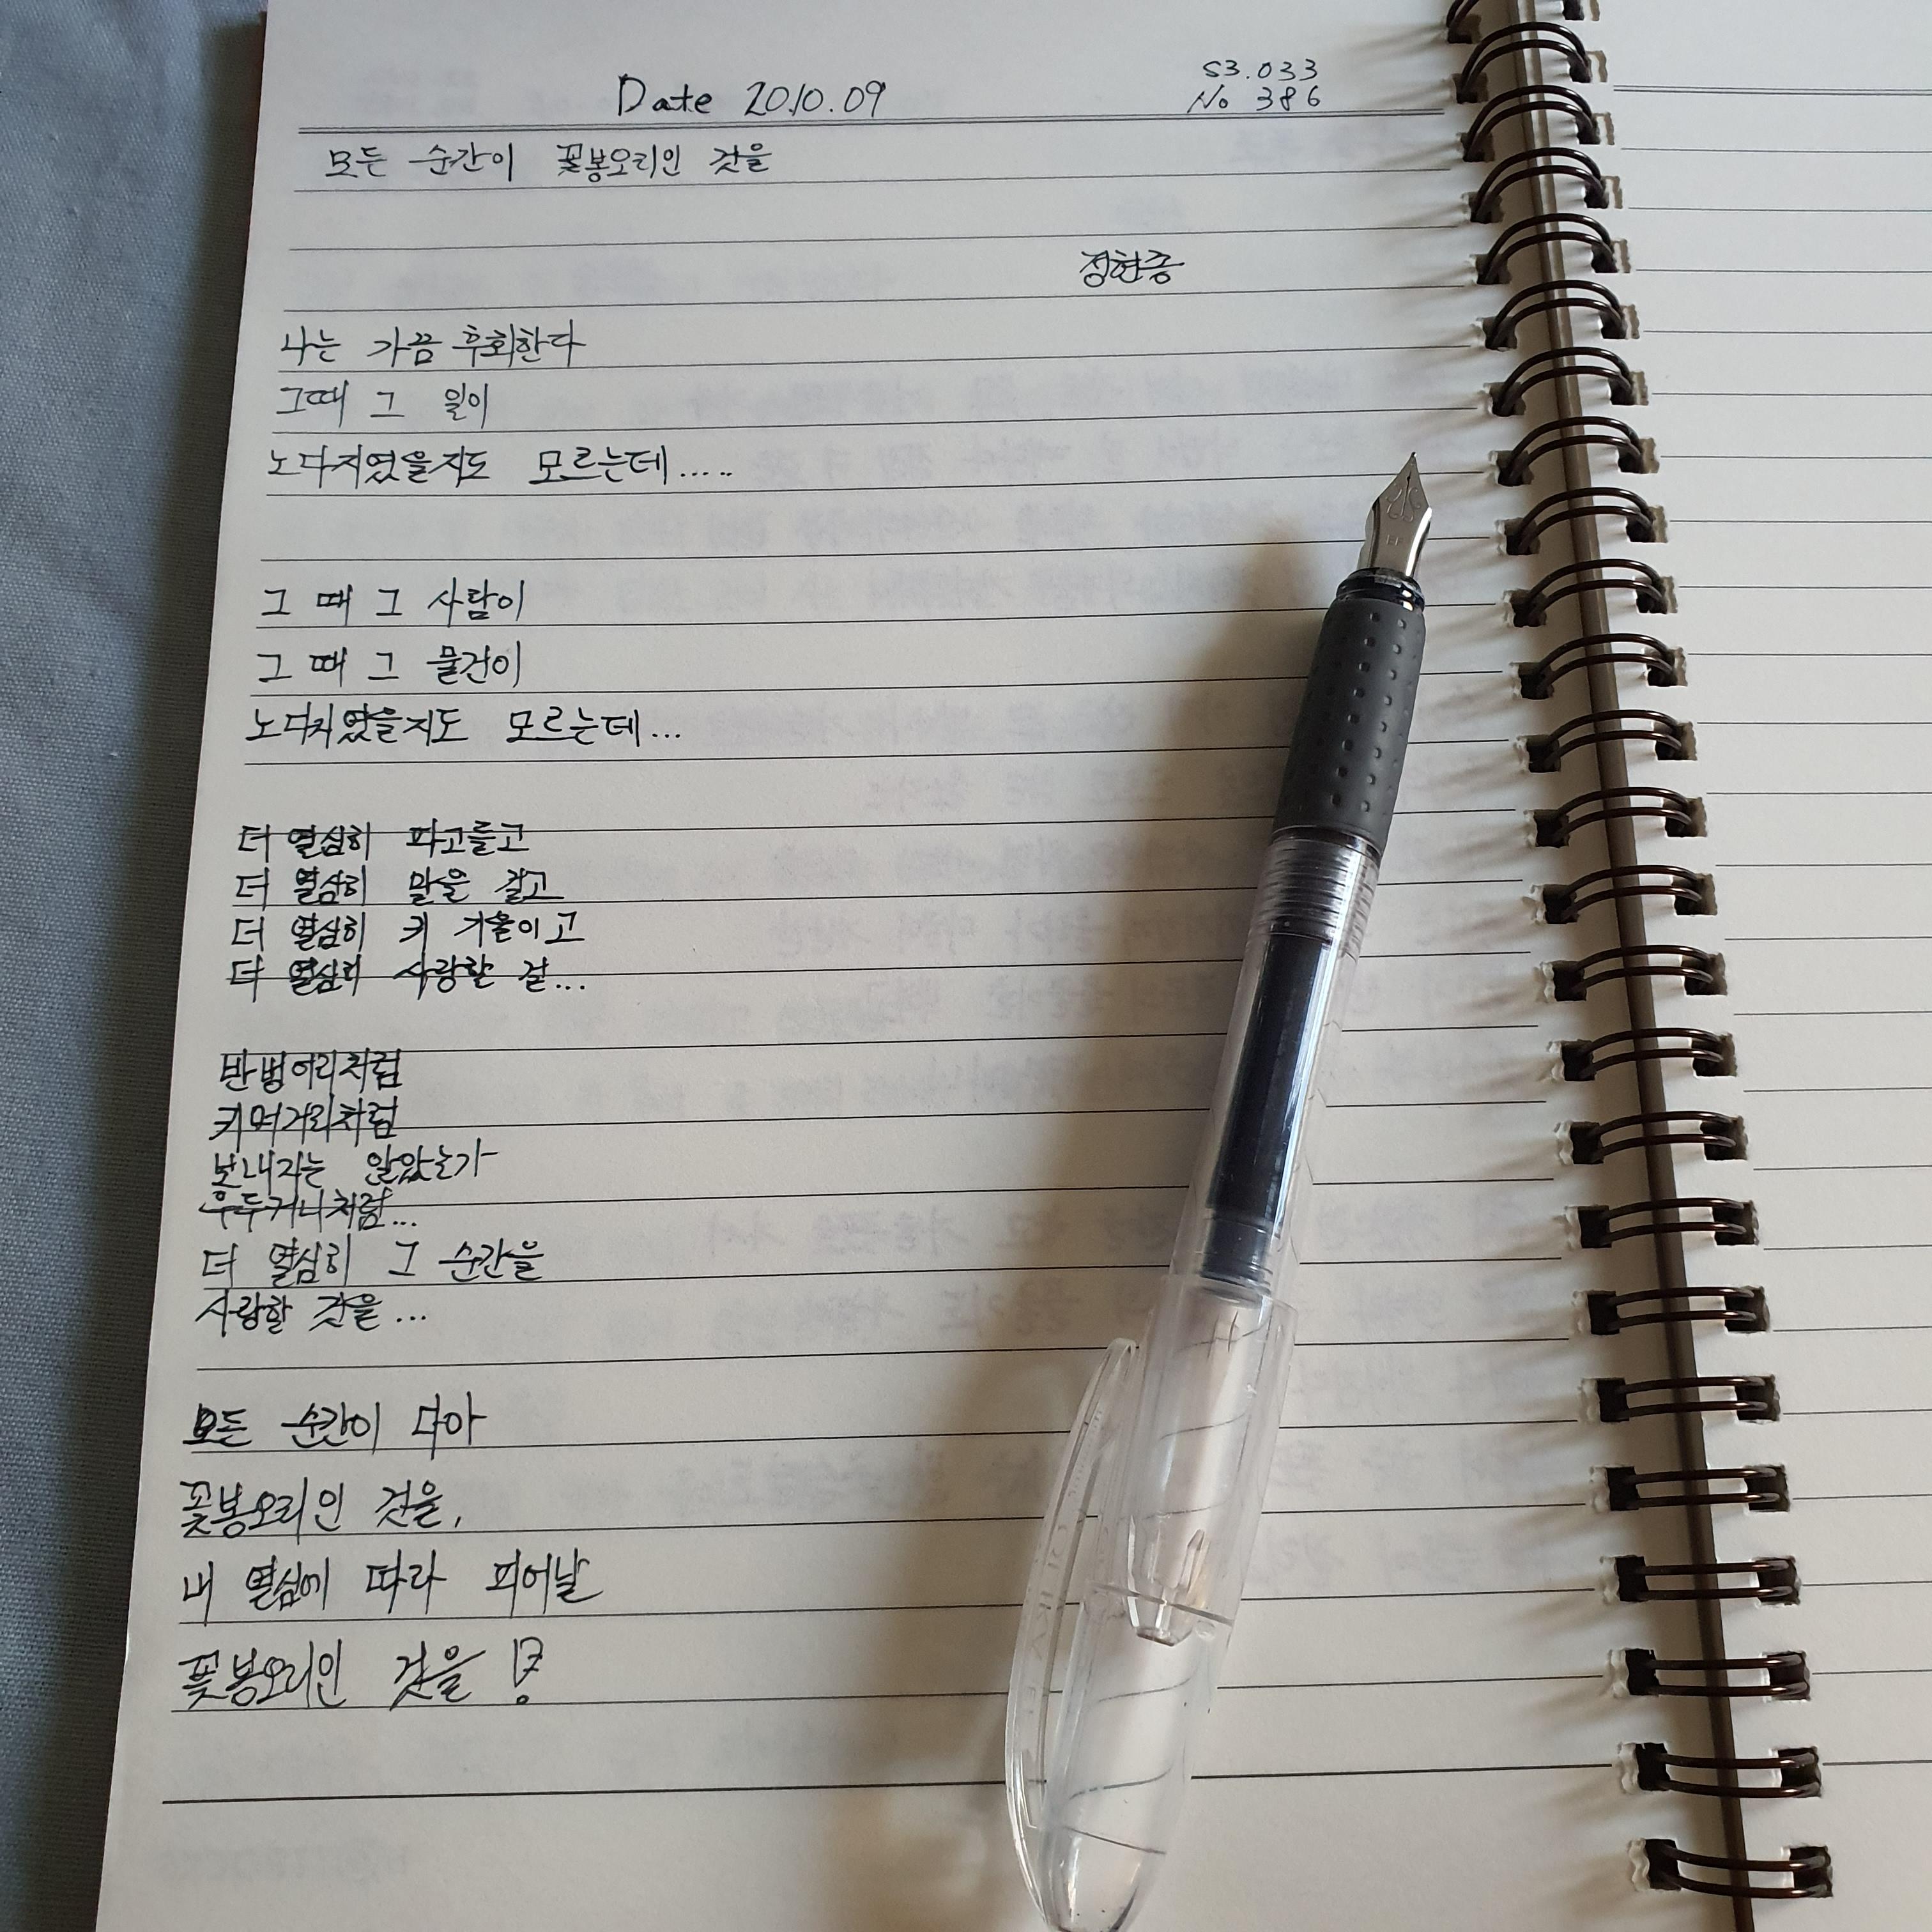 Date 2010.09
S3.033
No 386
모든 순간이 꽃봉오리인 것을
정현종
나는 가끔 후회한다
그때 그 일이
노다지였을지도 모르는데.....
그 때 그 사람이
그 때 그 물건이
노다지였을지도 모르는데...
더 열심히 파고들고
더 열심히 말을 걸고
더 열심히 귀 기울이고
더 열심히 사랑할 걸...
반벙어리처럼
귀머거리처럼
보내지는 않았는가
우두커니처럼...
더 열심히 그 순간을
사랑할 것을...
모든 순간이 다아
꽃봉오리인 것을,
내 열심에 따라 피어날
꽃봉오리인 것을!